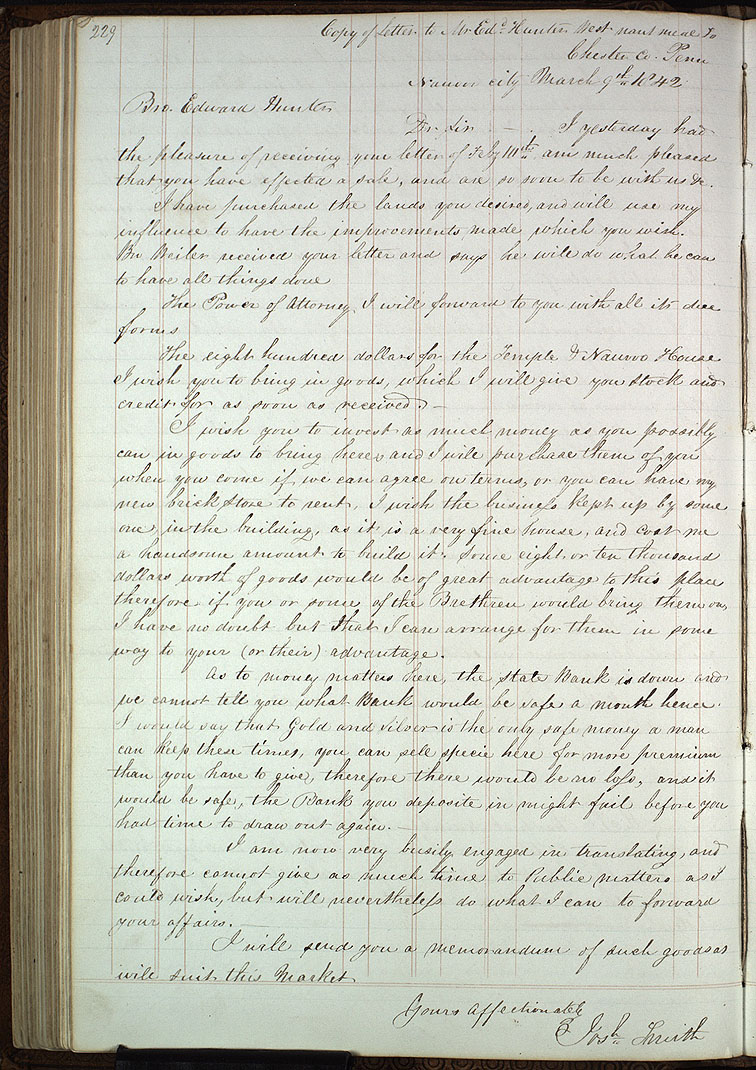 229
Copy of Letter to Mr Edd. Hunter West nantmeal Ts
Chester Co. Penn
Nauvoo city March 9th 1842
Bro. Edward Hunter
Dr Sir — . I yesterday had
the pleasure of receiving your letter of Feby 11th am much pleased
that you have effected a sale, and are so soon to be with us &c.
I have purchased the lands you desired, and will use my
influence to have the improvements made which you wish.
Bro Weiler received your letter and says he will do what he can
to have all things done
The Power of Attorney I will forward to you with all its due
forms
The eight hundred dollars for the Temple & Nauvoo House
I wish you to bring in goods, which I will give you stock and
credit for as soon as received. —
I wish you to invest as much money as you possibly
can in goods to bring here, and I will purchase them of you
when you come if, we can agree on terms, or you can have my
new brick store to rent, I wish the business kept up by some
one, in the building, as it is a very fine house, and cost me
a handsome amount to build it. Some eight, or ten thousand
dollars worth of goods would be of great advantage to this place
therefore if you or some of the Brethren would bring them on,
I have no doubt but that I can arrange for them in some
way to your (or their) advantage.
As to money matters here, the State Bank is down and
we cannot tell you what Bank would be safe a month hence.
I would say that Gold and Silver is the only safe money a man
can keep these times, you can sell specie here for more premium
than you have to give, therefore there would be no loss, and it
would be safe, the Bank you deposite in might fail before you
had time to draw out again. —
I am now very busily engaged in translating, and
therefore cannot give as much time to Public matters as I
could wish, but will nevertheless do what I can to forward
your affairs. —
I will send you a memorandum of such goods as
will suit this Market
Yours affectionately
Josh Smith